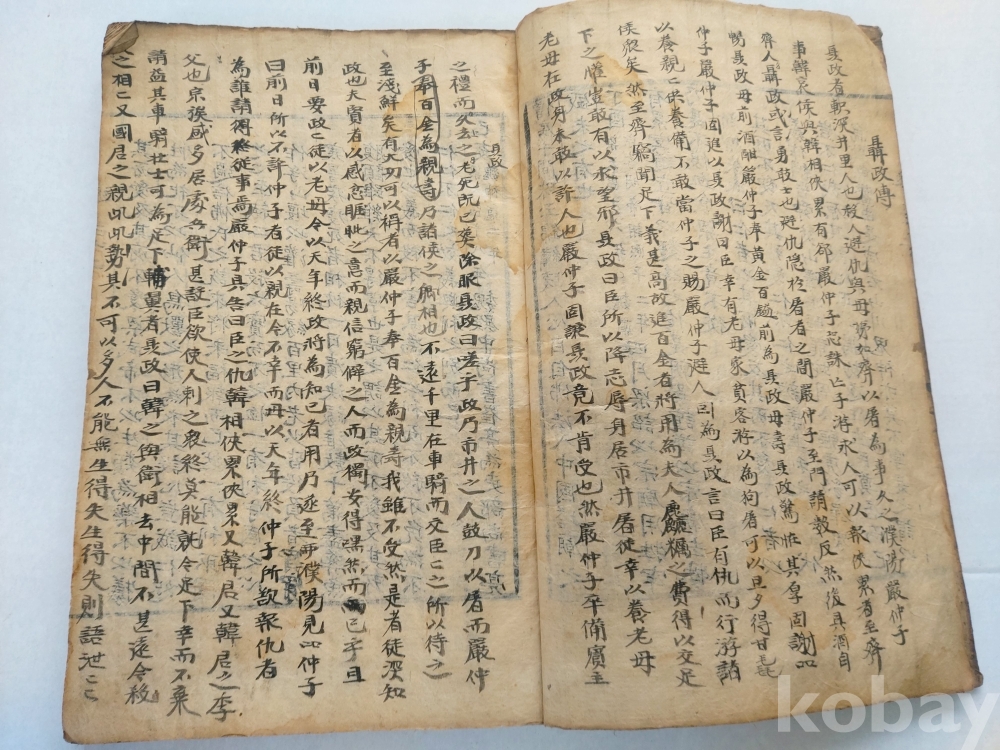 聶政傳
聶政者軹深井里人也殺人避仇與母姊如齊以屠為事久之濮陽嚴仲子
事韓哀侯與韓相俠累有郤嚴仲子恐誅亡游求人可以報俠累者至齊
齊人聶政或言勇敢士也避仇隱於屠者之間嚴仲子至門請數反然後具酒自
暢聶政母前酒酣嚴仲子奉黃金百鎰前為聶政母壽聶政驚怪其厚固謝
仲子嚴仲子固進以聶政謝曰臣幸有老母家貧客游以為狗屠可以旦夕得甘毳
以養親〻供養備不敢當仲子之賜嚴仲子避人因為聶政言曰臣有仇而行游諸
侯眾矣然至齊竊聞足下義甚高故進百金者將用為夫人麤糲之費得以交足
下之懽豈敢有以求望邪聶政曰臣所以降志辱身居市井屠徒幸以養老母
老母在政身未敢以許人也嚴仲子固讓聶政竟不肯受也然嚴仲子卒備賓主
之禮而久去之老死既已葬除服聶政曰嗟乎政乃市井之人鼓刀以屠而嚴仲
子奉百金為親壽乃諸侯之卿相也不遠千里枉車騎而交臣〻之所以待之
至淺鮮矣有大功可以稱者以嚴仲子奉百金為親壽我雖不受然是者徒深知
政也夫賢者以感忿睚眦之意而親信窮僻之人而政獨安得嘿然而已乎且
前日要政〻徒以老母今以天年終政將為知己者用乃遂至西濮陽見仲子
曰前日所以不許仲子者徒以親在今不幸而母以天年終仲子所欲報仇者
為誰請得終從事焉嚴仲子具告曰臣之仇韓相俠累俠累又韓君之季
父也宗族盛多居處兵衛甚設臣欲使人刺之眾終莫能就今足下幸而不棄
請益其車騎壯士可為足下輔翼者聶政曰韓之與衛相去中間不甚遠今殺
人之相〻又國君之親此其勢不可以多人不能無生得失生得失則語泄〻
kobay